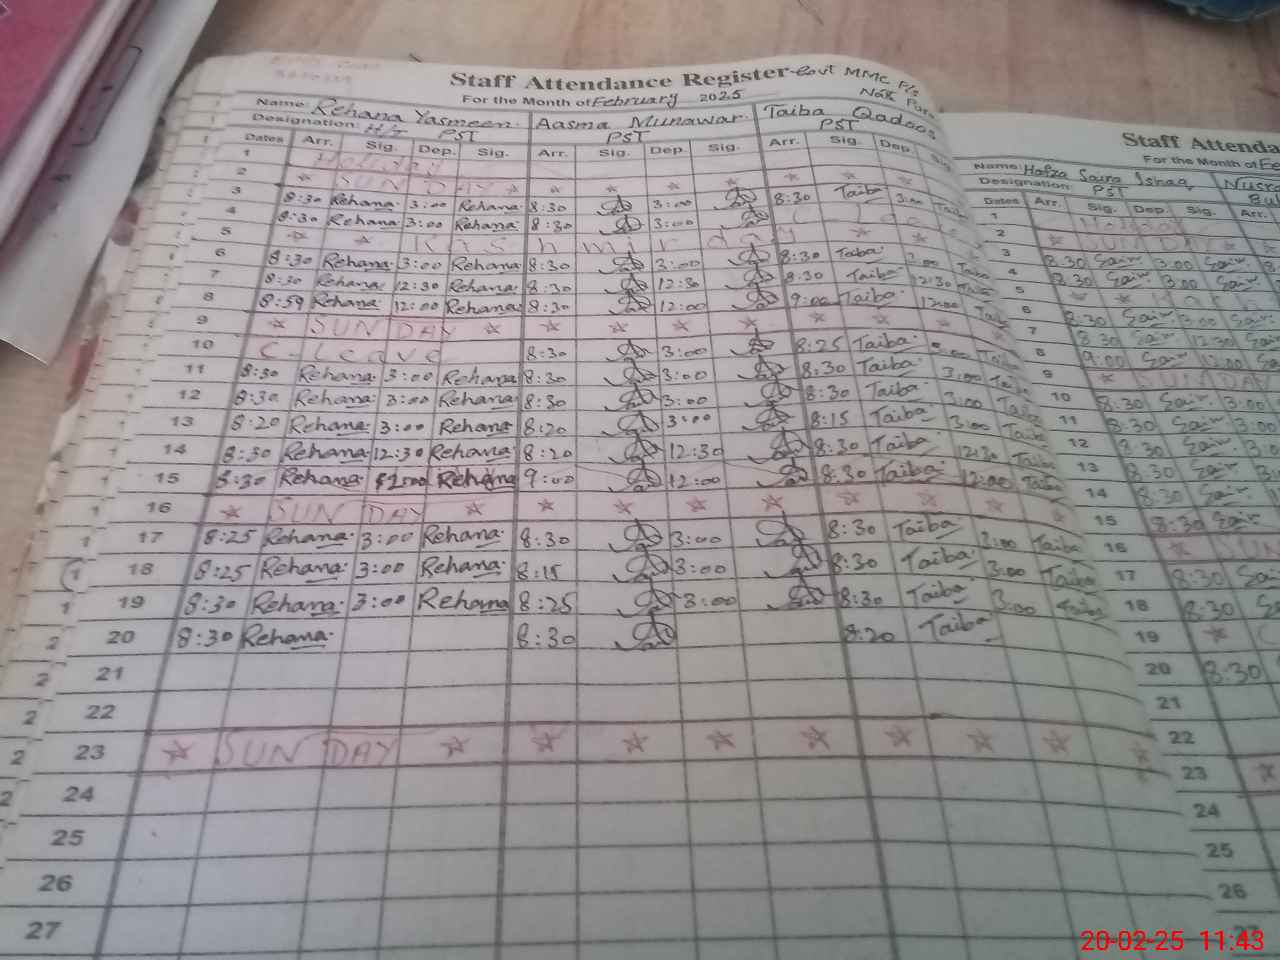 Staff Attendance Register Govt MMC P/s
For the Month of February 2025
Name: Rehana Yasmeen. Aasma Munawar. Taiba Qadoos
Designation: H/T PST PST PST
Dates Arr. Sig. Dep. Sig. Arr. Sig. Dep. Sig. Arr. Sig. Dep. Sig.
1 Holiday
2 SUN DAY
3 8:30 Rehana 3:00 Rehana 8:30 3:00 8:30 Taiba 3:00 Taiba
4 8:30 Rehana 3:00 Rehana 8:30 3:00
5 Kashmir day
6 8:30 Rehana 3:00 Rehana 8:30 3:00 8:30 Taiba 3:00 Taiba
7 8:30 Rehana 12:30 Rehana 8:30 12:30 8:30 Taiba 12:30 Taiba
8 8:59 Rehana 12:00 Rehana 8:30 12:00 9:00 Taiba 12:00 Taiba
9 SUN DAY
10 C. Leave 8:30 3:00 8:25 Taiba 3:00 Taiba
11 8:30 Rehana 3:00 Rehana 8:30 3:00 8:30 Taiba 3:00 Taiba
12 8:30 Rehana 3:00 Rehana 8:30 3:00 8:30 Taiba 3:00 Taiba
13 8:20 Rehana 3:00 Rehana 8:20 3:00 8:15 Taiba 3:00 Taiba
14 8:30 Rehana 12:30 Rehana 8:20 12:30 8:30 Taiba 12:30 Taiba
15 8:30 Rehana 12:00 Rehana 9:00 12:00 8:30 Taiba 12:00 Taiba
16 SUN DAY
17 8:25 Rehana 3:00 Rehana 8:30 3:00 8:30 Taiba 3:00 Taiba
18 8:25 Rehana 3:00 Rehana 8:15 3:00 8:30 Taiba 3:00 Taiba
19 8:30 Rehana 3:00 Rehana 8:25 3:00 8:30 Taiba 3:00 Taiba
20 8:30 Rehana 8:30 8:20 Taiba
21
22
23 SUN DAY
24
25
26
27
Staff Attenda
For the Month of Fe
Name: Hafza Saira Ishaq
Designation: PST
Dates Arr. Sig. Dep. Sig. Arr.
1 Holiday
2 SUN DAY
3 8:30 Sair 3:00 Sair
4 8:30 Sair 3:00 Sair
5
6 8:30 Sair 3:00 Sair
7 8:30 Sair 12:30 Sair
8 9:00 Sair 12:00 Sair
9 SUNDAY
10 8:30 Sair 3:00
11 8:30 Sair 3:00
12 8:30 Sair
13 8:30 Sair
14 8:30 Sair
15 8:30 Sair
16 SUN
17 8:30
18 8:30
19
20 8:30
21
22
23
24
25
26
27
20-02-25 11:43